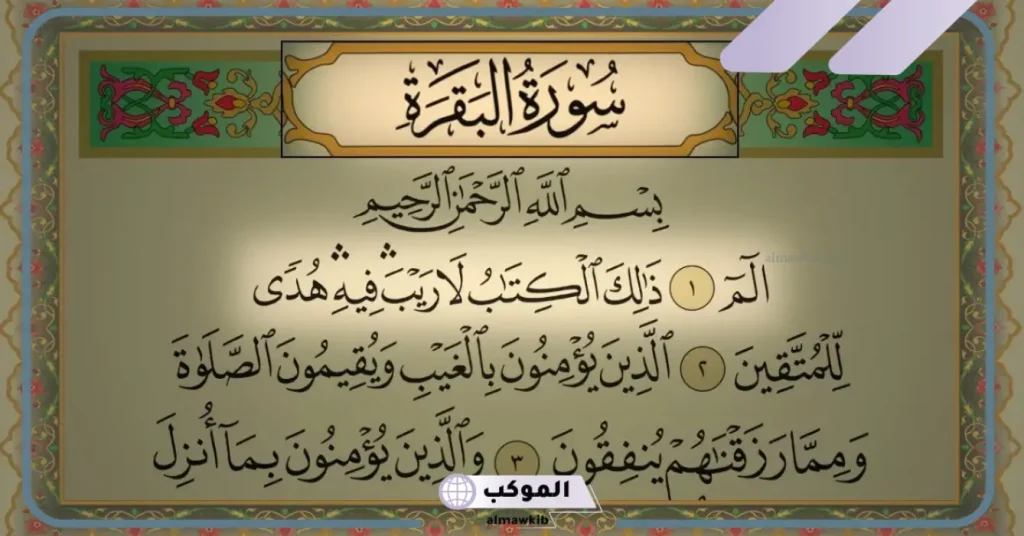 سُورَةُ البَقَرَةِ
بِسْمِ ٱللَّهِ ٱلرَّحْمَٰنِ ٱلرَّحِيمِ
الٓمٓ ١ ذَٰلِكَ ٱلْكِتَٰبُ لَا رَيْبَ ۛ فِيهِ ۛ هُدًى
لِّلْمُتَّقِينَ ٢ ٱلَّذِينَ يُؤْمِنُونَ بِٱلْغَيْبِ وَيُقِيمُونَ ٱلصَّلَوٰةَ
وَمِمَّا رَزَقْنَٰهُمْ يُنفِقُونَ ٣ وَٱلَّذِينَ يُؤْمِنُونَ بِمَآ أُنزِلَ
الموكب
almawkib